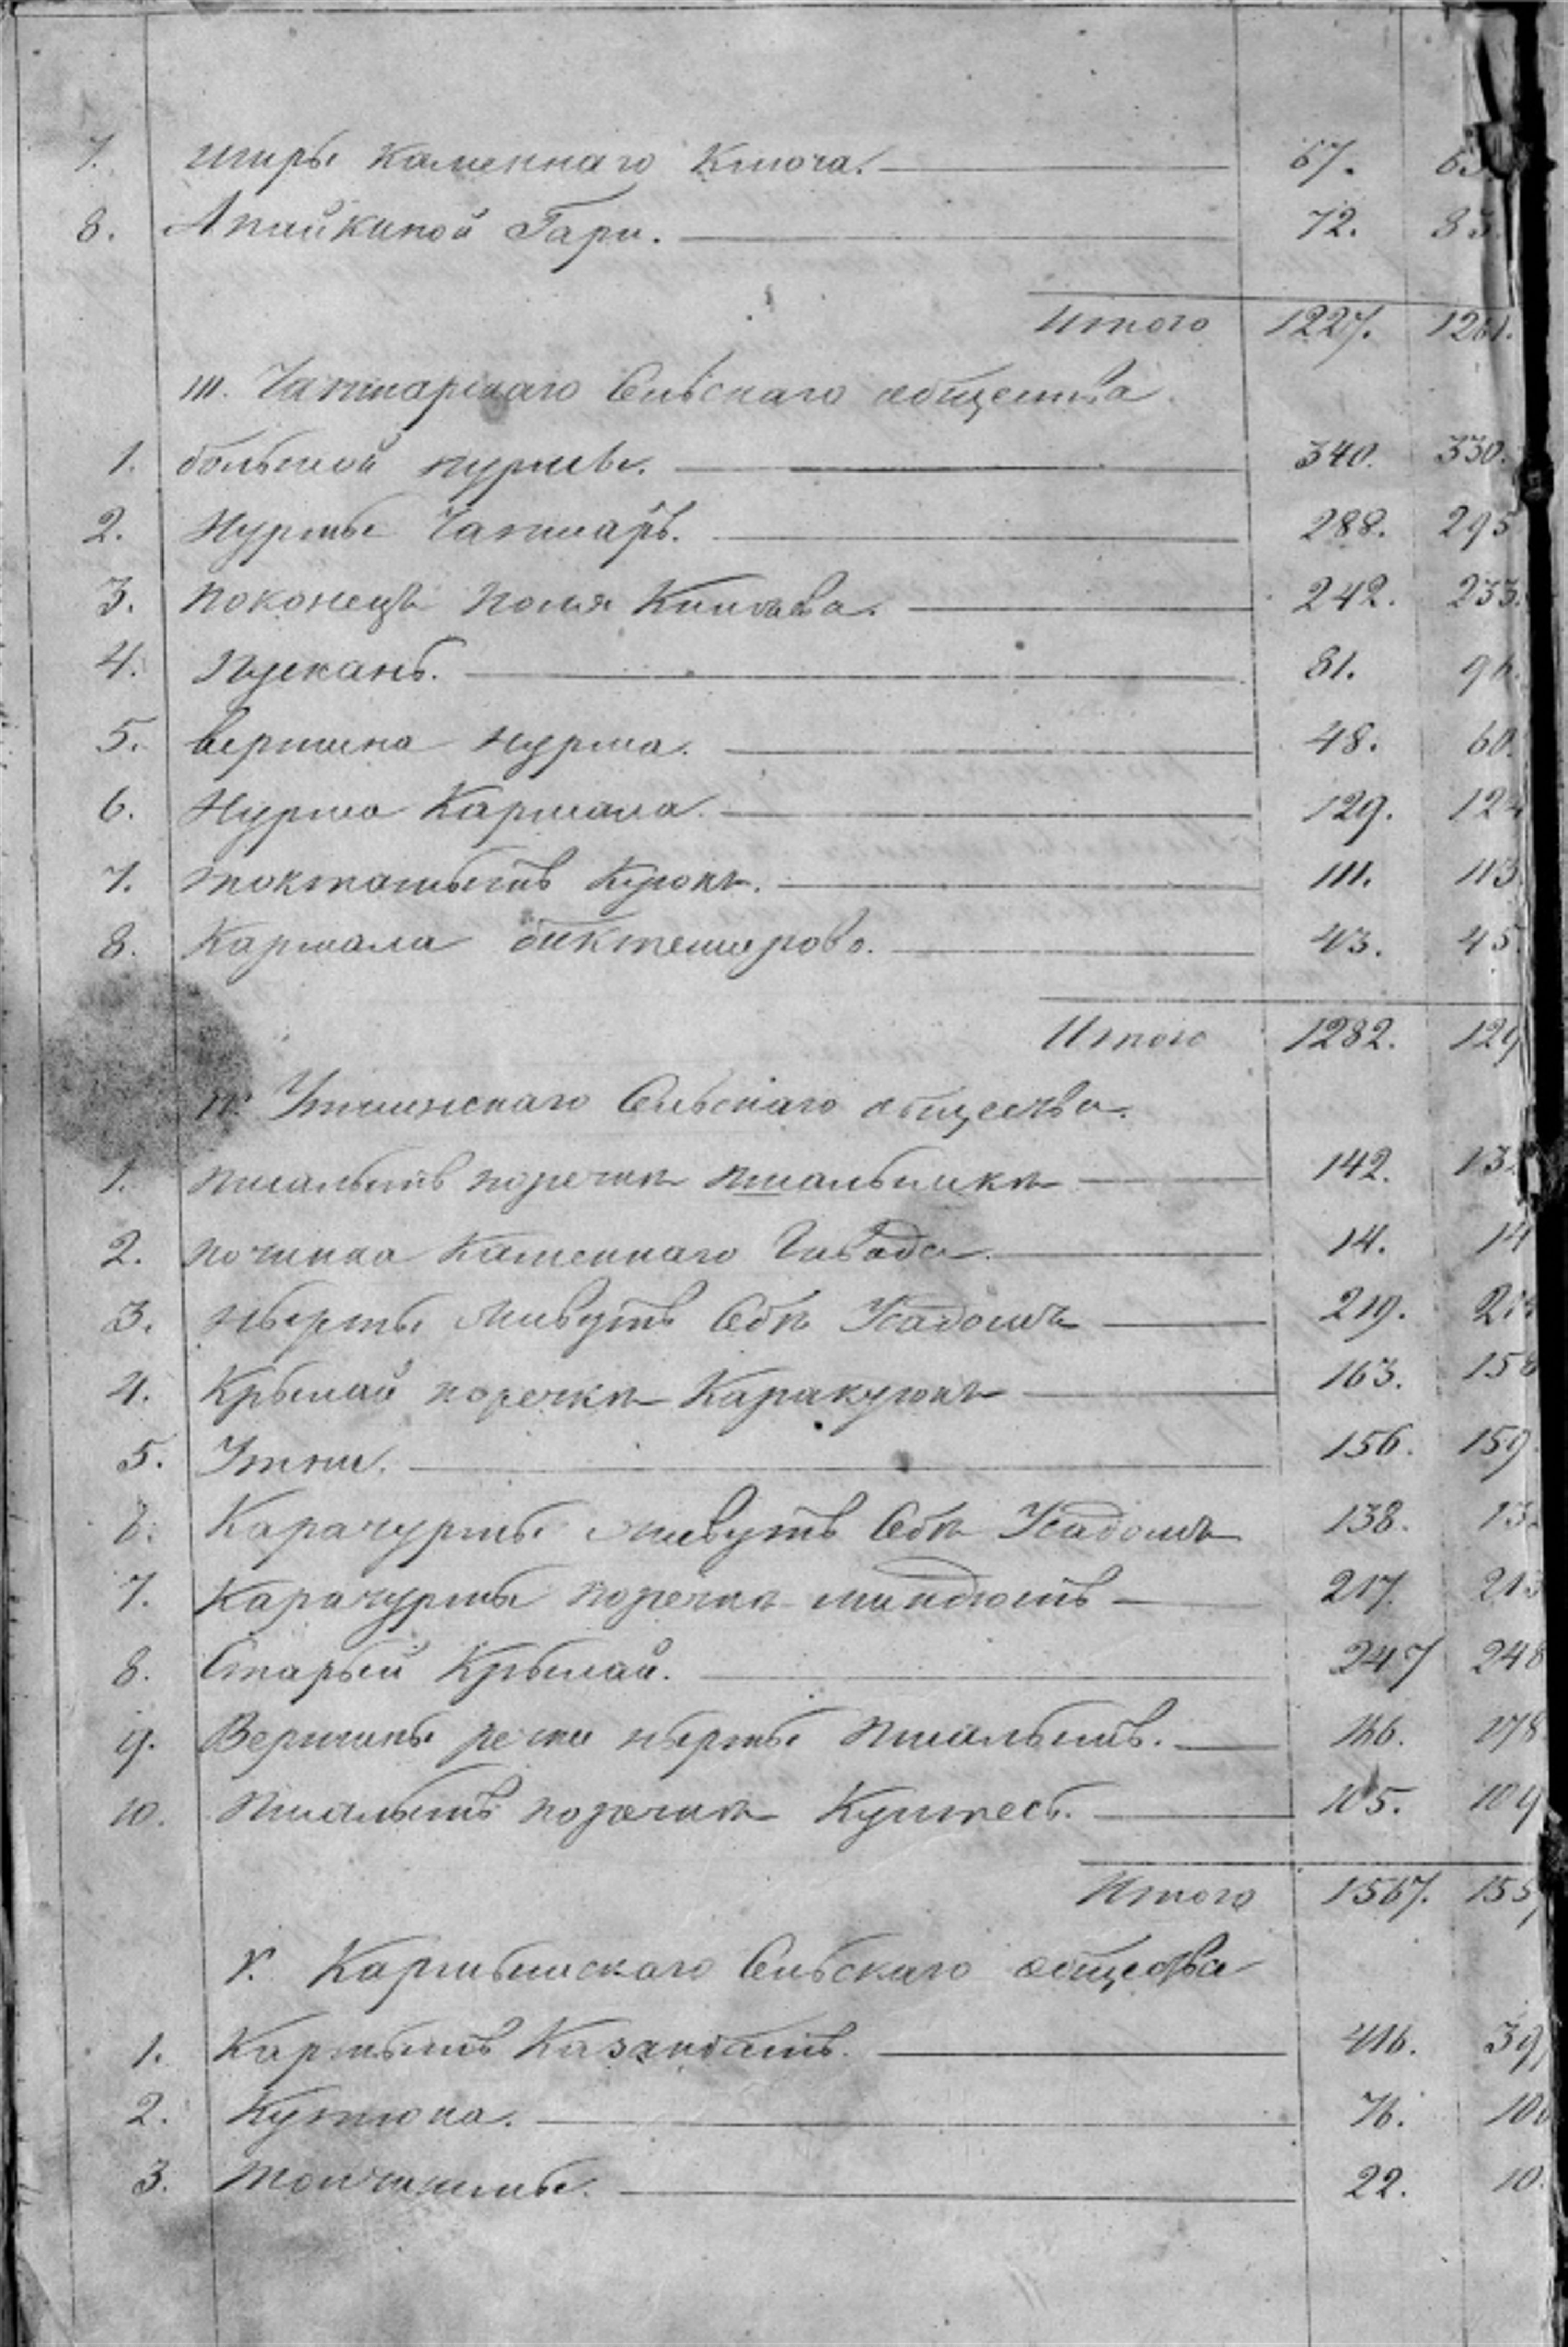 7. Ширы Каменнаго Ключа. 67. 63
8. Апайкиной Гари. 72. 83.
Итого 1227. 1261.
III. Чапшарскаго Сельскаго общества.
1. большой нурмы. 340. 330.
2. Нурмы Чапшаръ. 288. 295
3. поконецъ поля Кипчева. 242. 233.
4. Пускань. 81. 96.
5. вершина нурма. 48. 60.
6. Нурма Кармала. 129. 124
7. токташыкъ Курокъ. 111. 113.
8. Кармала биктемирова. 43. 45.
Итого 1282. 129
IV. Утинскаго Сельскаго общества.
1. пшалымъ поречки пшалымки 142. 13
2. починка Каменнаго Завода. 14. 14
3. нырты живутъ Объ Усадомъ 219. 21
4. Крымай поречки Каракуюкъ 163. 158
5. Утни. 156. 159.
6. Карачурмы живутъ Объ Усадомъ 138. 13
7. Карачурмы поречки миндюшъ 217. 213
8. Старый Крымай. 247 248
9. Вершины речки нырты пшалымъ. 166. 178
10. пшалымъ поречки Купкесь. 105. 109
Итого 1567. 155
V. Кармышскаго Сельскаго общества
1. Картымъ Казанбашъ. 416. 39
2. Кутюка. 76. 10
3. 22. 10.